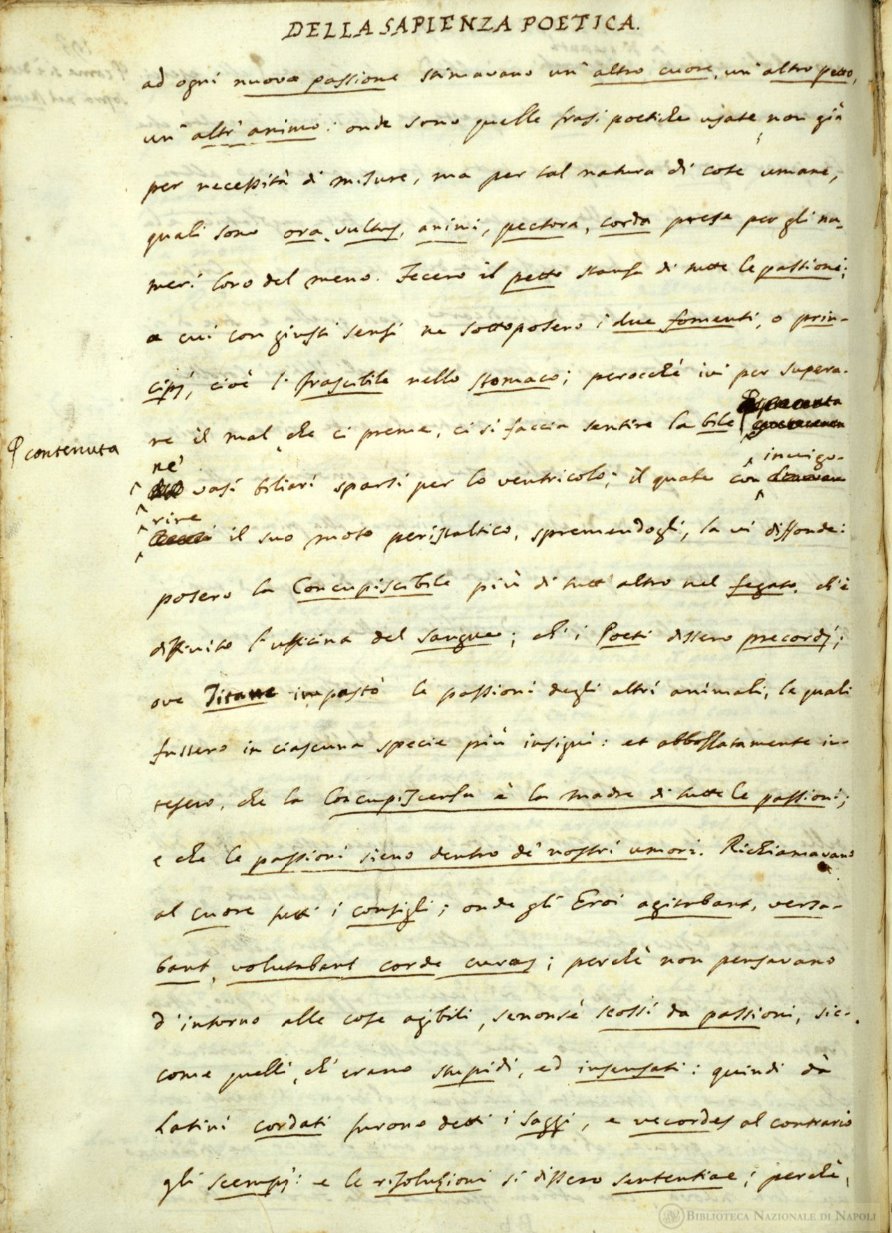 DELLA SAPIENZA POETICA.
ad ogni nuova passione stimavano un' altro cuore, un' altro petto,
un' altr' animo: onde sono quelle frasi poetiche usate, non già
per necessità di misure, ma per tal natura di cose umane,
quali sono ora, vultus, animi, pectora, corda prese per gli nu-
meri loro del meno. Fecero il petto stanza di tutte le passioni;
a cui con giusti sensi ne sottoposero i due fomenti, o prin-
cipj, cioè l'Irascibile nello stomaco; perocchè ivi per supera-
re il mal, che ci preme, ci si faccia sentire la bile
contenuta
ne' vasi biliari sparsi per lo ventricolo; il quale con invigo-
rire il suo moto peristaltico, spremendogli, la vi diffonde:
posero la Concupiscibile più di tutt'altro nel fegato, ch'è
diffinito l'ufficina del sangue; ch'i Poeti dissero precordj;
ove Titane impastò le passioni degli altri animali, le quali
fussero in ciascuna specie più insigni: et abbozzatamente in-
tesero, che la Concupiscenza è la madre di tutte le passioni;
e che le passioni sieno dentro de' nostri umori. Richiamavano
al cuore tutti i consigli; onde gli Eroi agitabant, versa-
bant, volutabant corde curas; perchè non pensavano
d'intorno alle cose agibili, senonsè scossi da passioni, sic-
come quelli, ch'erano stupidi, ed insensati: quindi da
Latini cordati furono detti i saggi, e vecordes al contrario
gli scempj: e le risoluzioni si dissero sententiae; perchè,
BIBLIOTECA NAZIONALE DI NAPOLI